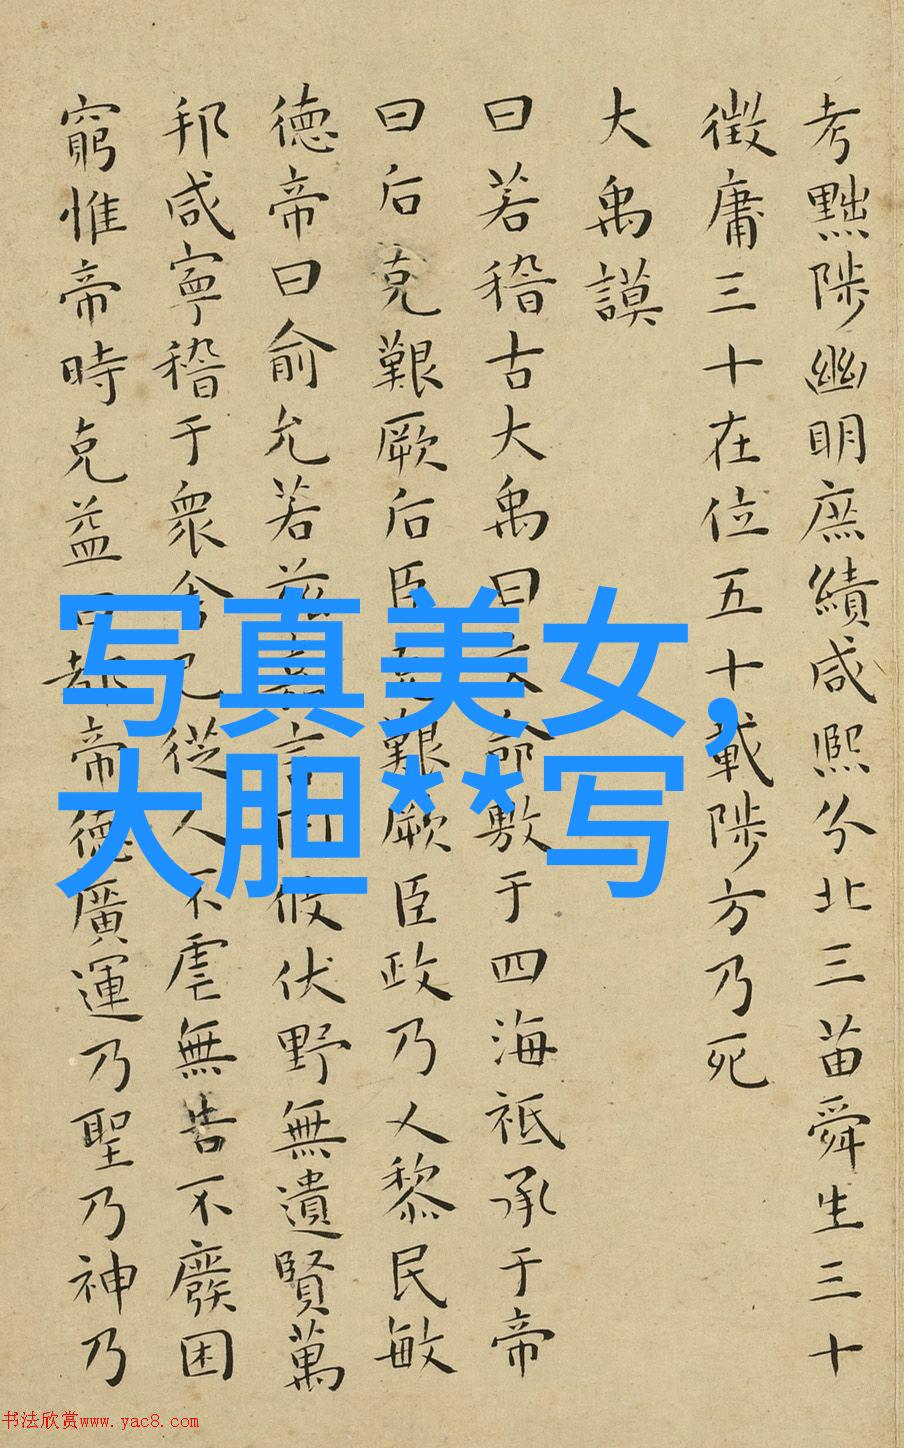 考黜陟幽明庶績咸熙分北三苗舜生三十
徵庸三十在位五十載陟方乃死
大禹謨
曰若稽古大禹曰文命敷于四海祗承于帝
曰后克艱厥后臣克艱厥臣政乃乂黎民敏
德帝曰俞允若茲嘉言罔攸伏野無遺賢萬
邦咸寧稽于衆舍己從人不虐無告不廢困
窮惟帝時克益曰都帝德廣運乃聖乃神乃
写真美女,
大胆**写
书法欣赏www.yac8.com